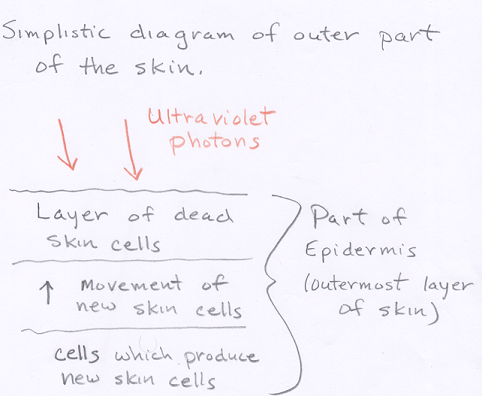 Simplistic diagram of outer part
of the skin.
Ultraviolet
photons
Layer of dead
skin cells
↑ Movement of
new skin cells
cells which produce
new skin cells
Part of
Epidermis
(outermost layer
of skin)